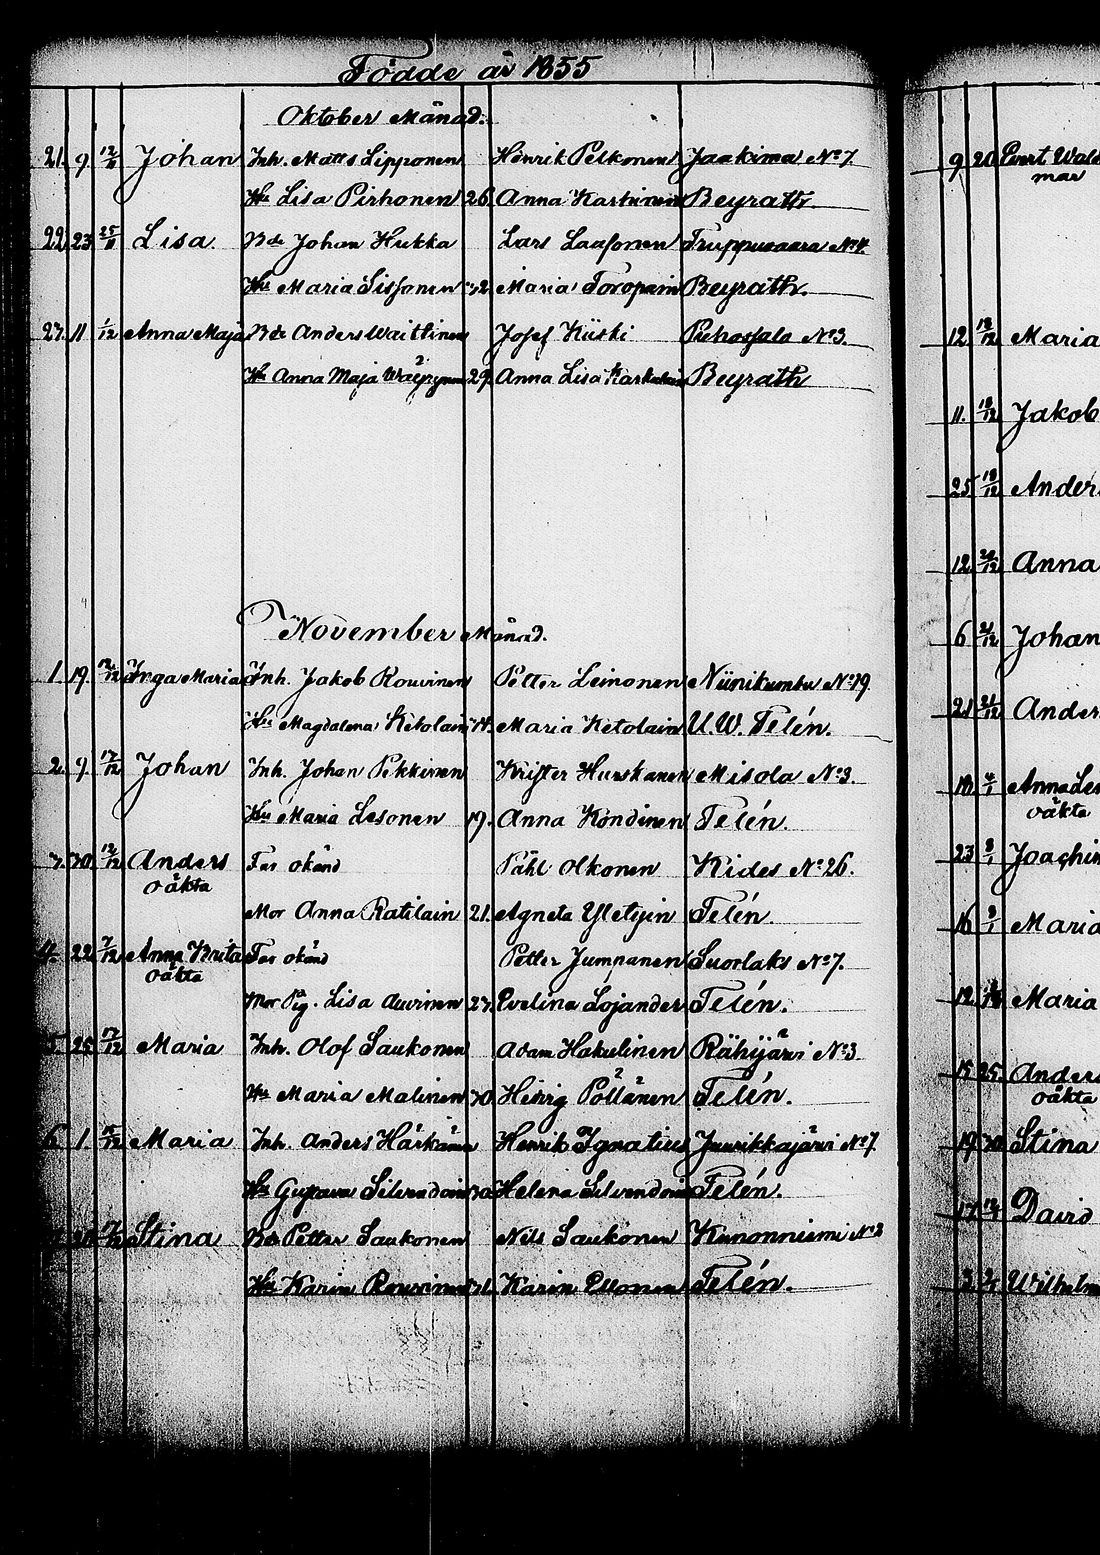 Födde år 1855
Oktober Månad.
21. 9. 12/11 Johan Inh. Matts Lipponen Henrik Pelkonen Jaakima No 7
Hu Lisa Pirhonen 26 Anna Karhunen Beyrath.
22. 23. 25/11 Lisa. Bde Johan Hukka Lars Laasonen Truppuvaara No 4.
Hu Maria Sissonen 32. Maria Toropain Beyrath.
23. 11 1/12 Anna Maja Bde Anders Waittinen Josef Kiiski No 3.
Hu Anna Maja Wäyrynen 29. Anna Lisa Beyrath
November Månad.
1. 19. Inga Maria Inh. Jakob Rouvinen Petter Leinonen Niinikumbu No 19.
Hu Magdalena Ketolain Maria Ketolain U.W. Telén.
2. 9. 17/12 Johan Inh. Johan Pekkinen Krister Hurskanen Misola No 3.
Hu Maria Lesonen 19. Anna Kondinen Telén.
3. 30. 12/12 Anders Far okänd Påhl Olkonen Kides No 26.
oäkta
Mor Anna Ratilain 21. Agneta Telén.
4. 22. 7/12 Anna Brita Far okänd Petter Jumpanen Suorlaks No 7.
oäkta
Mor Pig. Lisa Auvinen 23. Evelina Lojander Telén.
5. 25. 17/12 Maria Inh. Olof Saukonen Adam Hakulinen Rähijärvi No 3.
Hu Maria Malinen 30. Hedvig Pöllänen Telén.
6. 1. Maria Inh. Anders Härkänen Henrik Ignatius Juurikkajärvi No 7.
Hu Gustava Silvendoin 30 Helena Silvendoin Telén.
Stina Bde Petter Saukonen Nils Saukonen Kunonniemi No 2
Hu Karin Rouvinen Karin Telén.
9 20 Evert Wald
mar
12. 18/12 Maria
11. 18/12 Jakob
25 18/12 Ander
12. 26/12 Anna
6 21/12 Johan
21 Ander
18 4/1 Anna Le
oäkta
23 Joachim
16 Maria
12. Maria
15 25. Anders
oäkta
19 30 Stina
17. David
3 Wilhelm